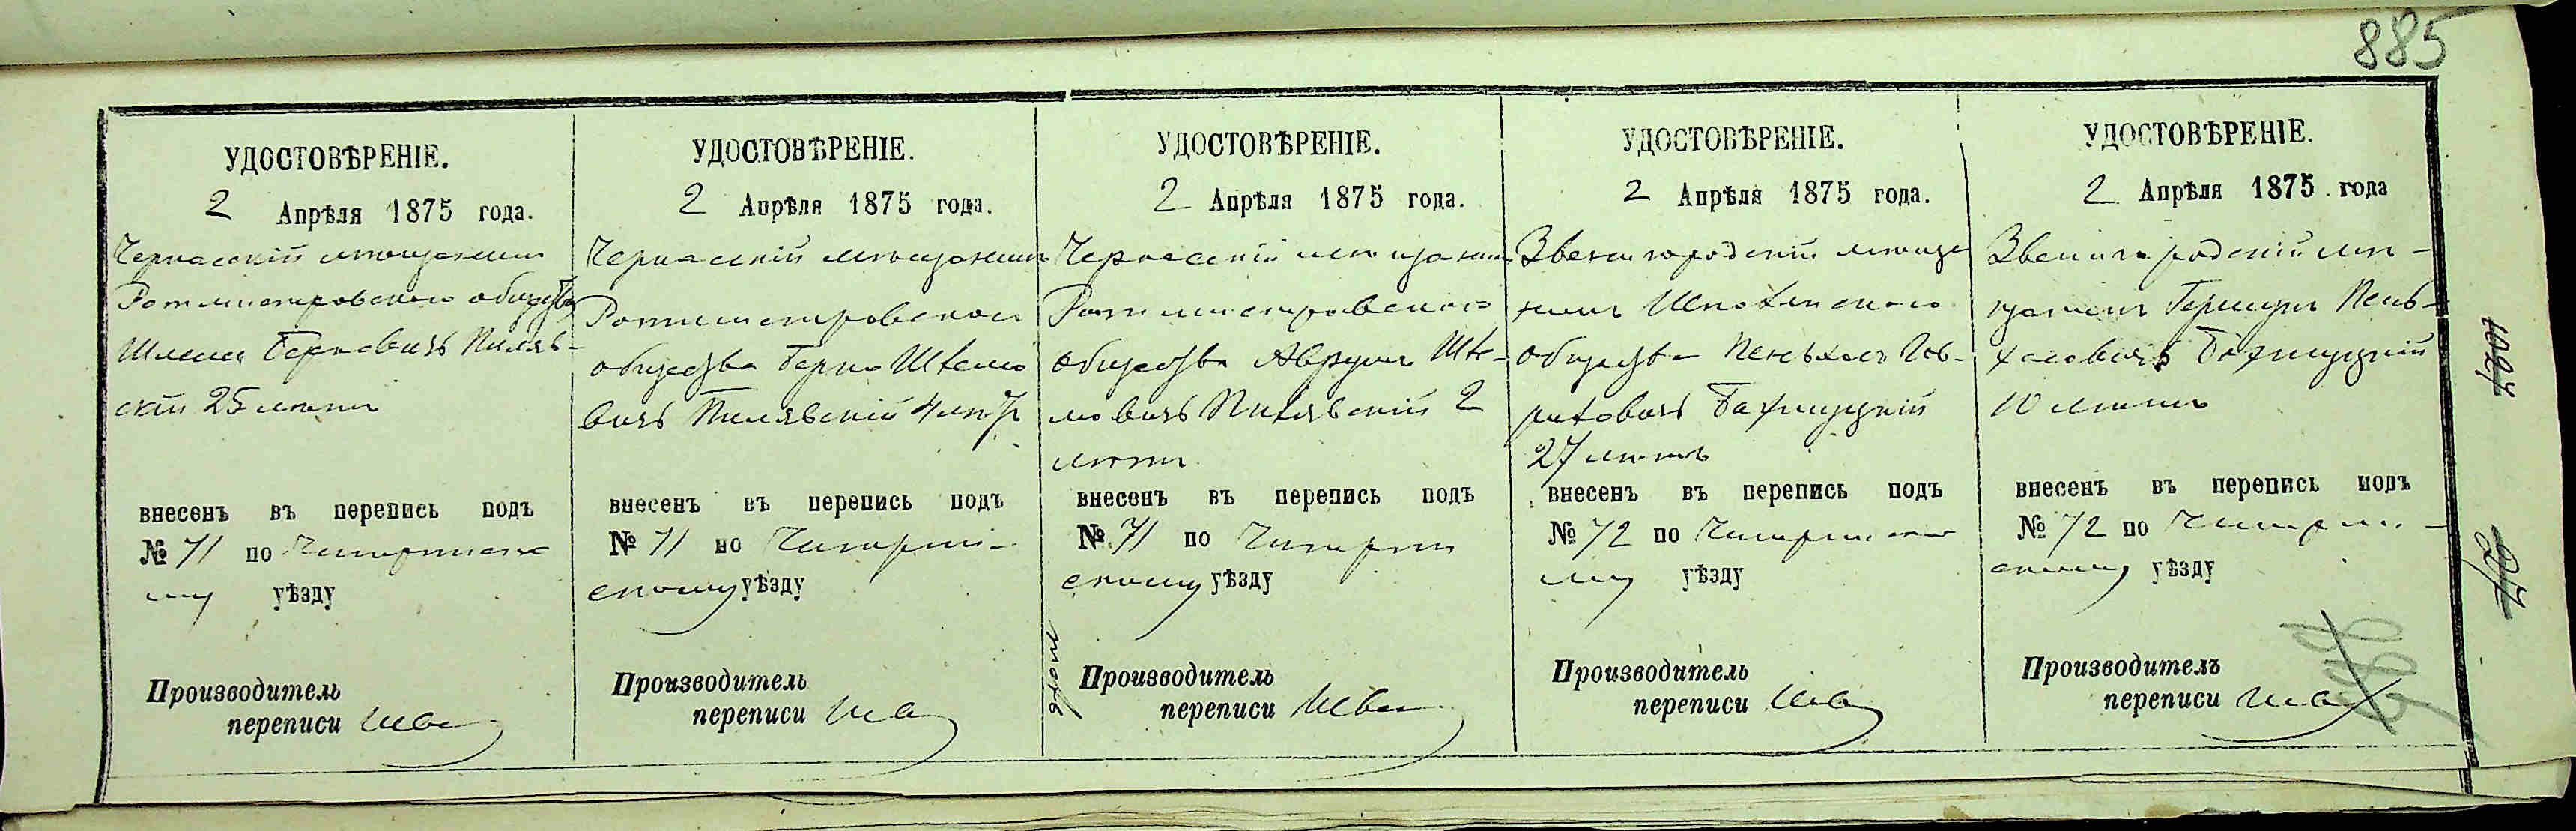 885
УДОСТОВѢРЕНІЕ.
2 Апрѣля 1875 года.
Черкасскій мѣщанинъ
Ротмистровскаго общества
Шлема Берковичъ Пиляв-
скій 25 лѣтъ
внесенъ въ перепись подъ
№ 71 по Чигиринско
му уѣзду
Производитель
переписи
УДОСТОВѢРЕНІЕ.
2 Апрѣля 1875 года.
Черкасскій мѣщанинъ
Ротмистровскаго
общества Берко Шлемо
вичъ Пилявскій 4
внесенъ въ перепись подъ
№ 71 по Чигирин-
скому уѣзду
Производитель
переписи
УДОСТОВѢРЕНІЕ.
2 Апрѣля 1875 года.
Черкасскій мѣщанинъ
Ротмистровскаго
общества Аврумъ Шле-
мовичъ Пилявскій 2
лѣтъ
внесенъ въ перепись подъ
№ 71 по Чигирин
скому уѣзду
Производитель
переписи
УДОСТОВѢРЕНІЕ.
2 Апрѣля 1875 года.
Звенигородскій мѣща
нинъ Шполянскаго
общества
Бахмуцкій
27 лѣтъ
внесенъ въ перепись подъ
№ 72 по Чигиринско
му уѣзду
Производитель
переписи
УДОСТОВѢРЕНІЕ.
2 Апрѣля 1875 года
Звенигородскій мѣ-
щанинъ Гершунъ Пень-
ховичъ Бахмуцкій
10 лѣтъ
внесенъ въ перепись подъ
№ 72 по Чигирин-
скому уѣзду
Производитель
переписи